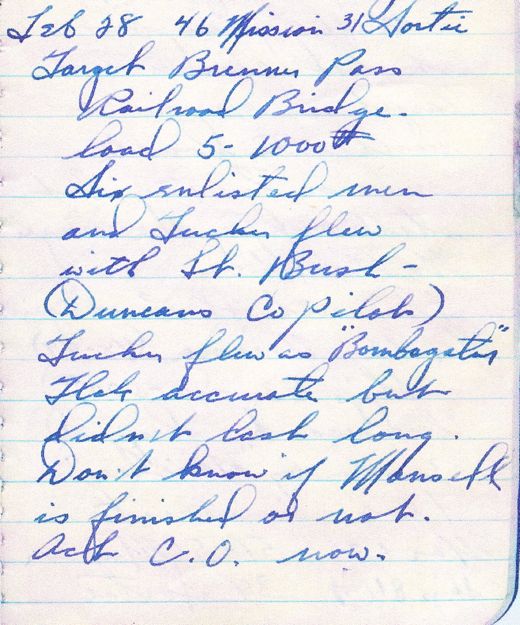 Feb 28 46 Mission 31 Sortie
Target Brenner Pass
Railroad Bridge.
load 5-1000#
Six enlisted men
and Tucker flew
with Lt. Bush -
(Duncans Co pilot)
Tucker flew as "Bombagator"
Flak accurate but
didn't last long.
Don't know if Mansell
is finished or not.
Act C.O. now.